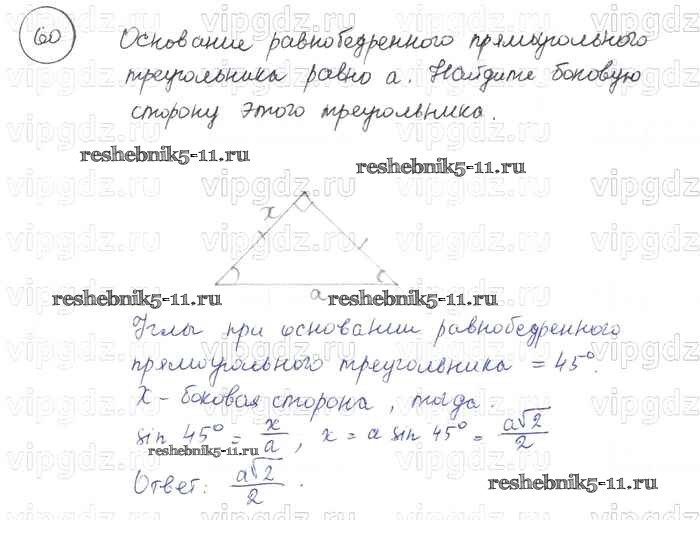 60
Основание равнобедренного прямоугольного
треугольника равно a. Найдите боковую
сторону этого треугольника.
reshebnik5-11.ru reshebnik5-11.ru
vipgdz.ru vipgdz.ru vipgdz.ru vipgdz.ru
x
reshebnik5-11.ru a reshebnik5-11.ru
Углы при основании равнобедренного
прямоугольного треугольника = 45°.
X - боковая сторона, тогда.
sin 45° = x/a, x = a sin 45° = a√2/2
reshebnik5-11.ru
Ответ: a√2/2.
reshebnik5-11.ru